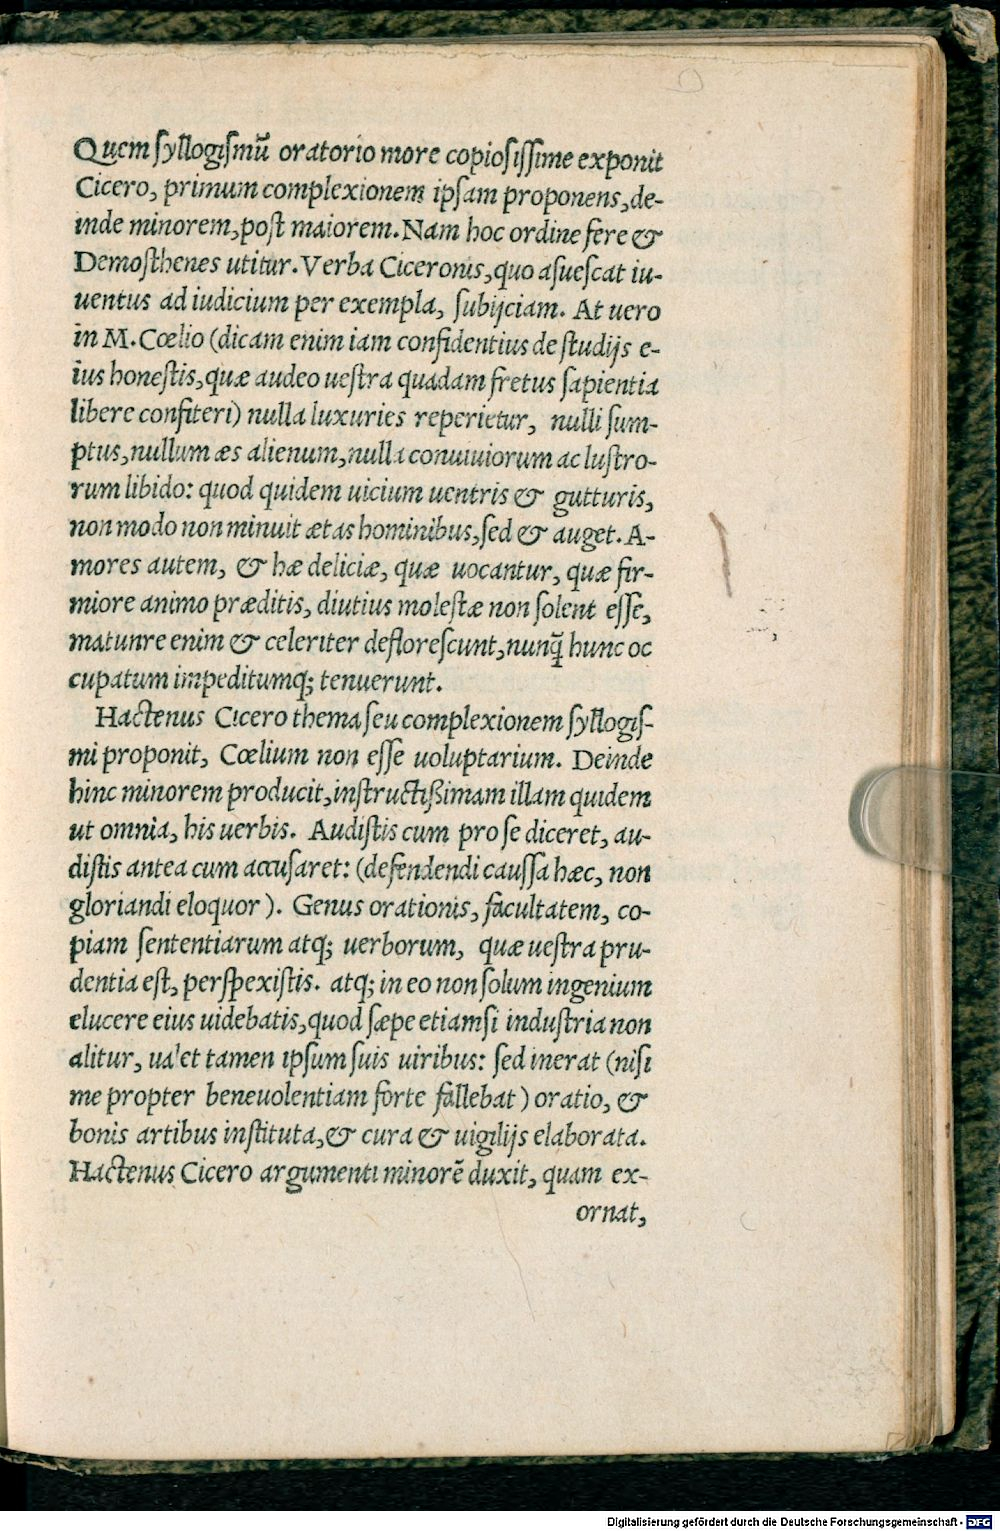 Quem syllogismũ oratorio more copiosissime exponit
Cicero, primum complexionem ipsam proponens, de-
inde minorem, post maiorem. Nam hoc ordine fere &
Demosthenes utitur. Verba Ciceronis, quo asuescat iu-
uentus ad iudicium per exempla, subijciam. At uero
in M. Cœlio (dicam enim iam confidentius de studijs e-
ius honestis, quæ audeo uestra quadam fretus sapientia
libere confiteri) nulla luxuries reperietur, nulli sum-
ptus, nullum æs alienum, nulla conuiuiorum ac lustro-
rum libido: quod quidem uicium uentris & gutturis,
non modo non minuit ætas hominibus, sed & auget. A-
mores autem, & hæ deliciæ, quæ uocantur, quæ fir-
miore animo præditis, diutius molestæ non solent esse,
mature enim & celeriter deflorescunt, nunq̃ hunc oc
cupatum impeditumq; tenuerunt.
Hactenus Cicero thema seu complexionem syllogis-
mi proponit, Cœlium non esse uoluptarium. Deinde
hinc minorem producit, instructißimam illam quidem
ut omnia, his uerbis. Audistis cum pro se diceret, au-
distis antea cum accusaret: (defendendi caussa hæc, non
gloriandi eloquor). Genus orationis, facultatem, co-
piam sententiarum atq; uerborum, quæ uestra pru-
dentia est, perspexistis. atq; in eo non solum ingenium
elucere eius uidebatis, quod sæpe etiamsi industria non
alitur, ualet tamen ipsum suis uiribus: sed inerat (nisi
me propter beneuolentiam forte fallebat) oratio, &
bonis artibus instituta, & cura & uigilijs elaborata.
Hactenus Cicero argumenti minorẽ duxit, quam ex-
ornat,
Digitalisierung gefördert durch die Deutsche Forschungsgemeinschaft - DFG